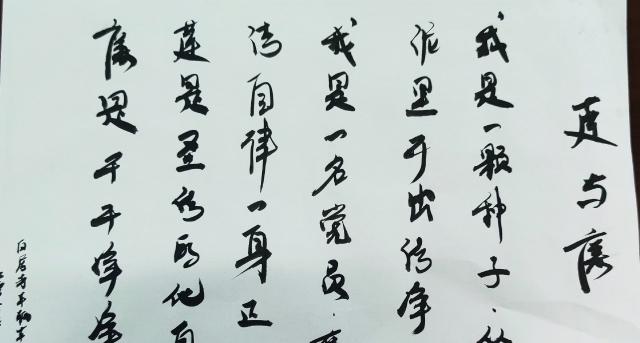 莲与廉
我是一颗种子·
泥里开出洁净
我是一名党员·
清自律一身正
莲是圣洁的化身
廉是干干净净